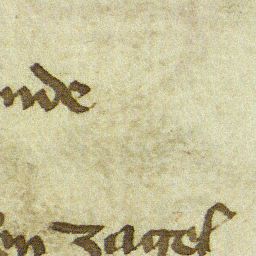 nde
en zagel